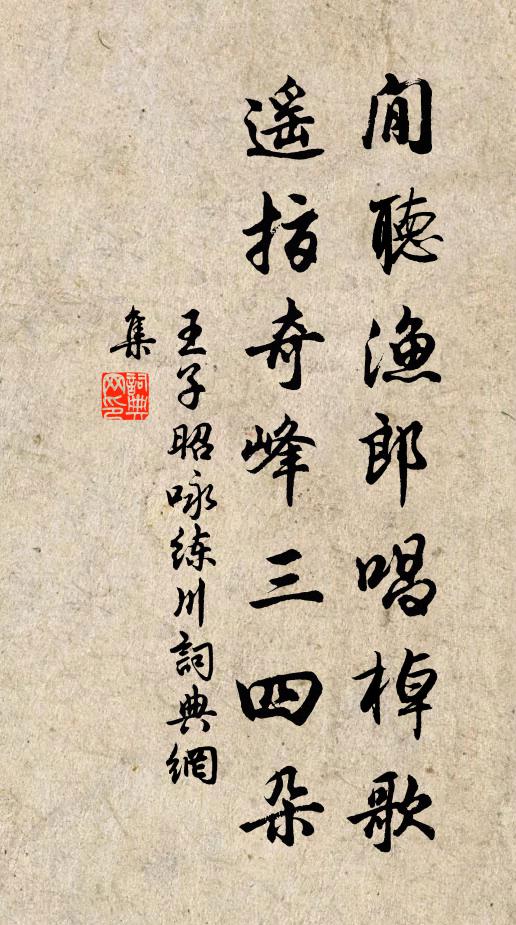 閒聽漁郎唱棹歌
遥指奇峰三四朵
王子昭咏练川詞典網
集
詞典
网印